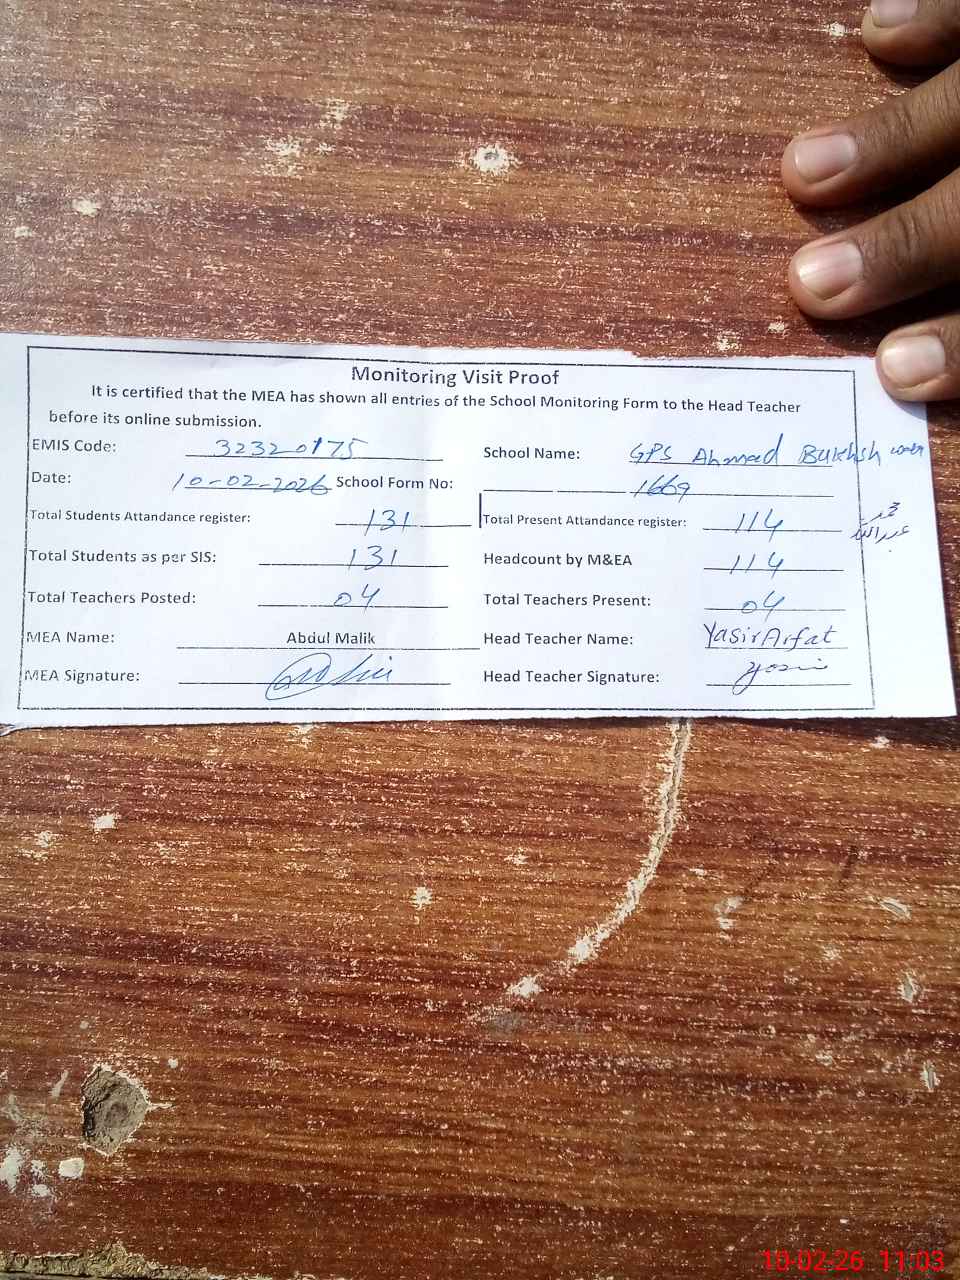 Monitoring Visit Proof
It is certified that the MEA has shown all entries of the School Monitoring Form to the Head Teacher
before its online submission.
EMIS Code: 32320175 School Name: GPS Ahmad Bukhsh
Date: 10-02-2026 School Form No: 1669
Total Students Attandance register: 131 Total Present Attandance register: 114
Total Students as per SIS: 131 Headcount by M&EA 114
Total Teachers Posted: 04 Total Teachers Present: 04
MEA Name: Abdul Malik Head Teacher Name: Yasir Arfat
MEA Signature: Head Teacher Signature:
محمد
عبداللہ
10-02-26 11:03